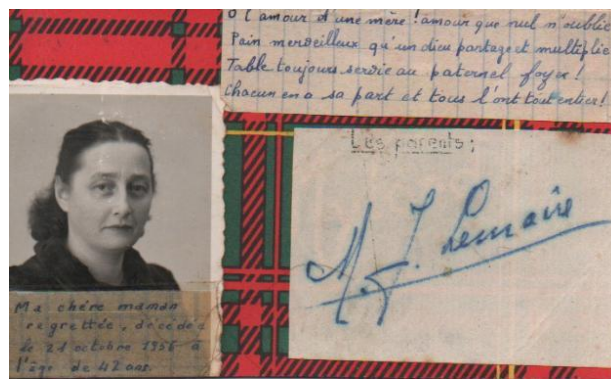 O l'amour d'une mère ! amour que nul n'oublie
Pain merveilleux qu'un dieu partage et multiplie
Table toujours servie au paternel foyer !
Chacun en a sa part et tous l'ont tout entier !
Les parents :
M. J. Lemaire
Ma chère maman
regrettée, décédée
le 21 octobre 1956 à
l'âge de 42 ans.